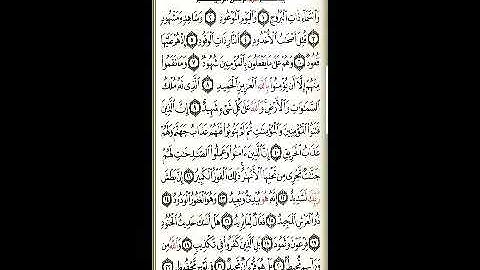 وَٱلسَّمَآءِ ذَاتِ ٱلْبُرُوجِ ١ وَٱلْيَوْمِ ٱلْمَوْعُودِ ٢ وَشَاهِدٍ وَمَشْهُودٍ
٣ قُتِلَ أَصْحَٰبُ ٱلْأُخْدُودِ ٤ ٱلنَّارِ ذَاتِ ٱلْوَقُودِ ٥ إِذْ هُمْ عَلَيْهَا
قُعُودٌ ٦ وَهُمْ عَلَىٰ مَا يَفْعَلُونَ بِٱلْمُؤْمِنِينَ شُهُودٌ ٧ وَمَا نَقَمُوا۟
مِنْهُمْ إِلَّآ أَن يُؤْمِنُوا۟ بِٱللَّهِ ٱلْعَزِيزِ ٱلْحَمِيدِ ٨ ٱلَّذِى لَهُۥ مُلْكُ
ٱلسَّمَٰوَٰتِ وَٱلْأَرْضِ وَٱللَّهُ عَلَىٰ كُلِّ شَىْءٍ شَهِيدٌ ٩ إِنَّ ٱلَّذِينَ
فَتَنُوا۟ ٱلْمُؤْمِنِينَ وَٱلْمُؤْمِنَٰتِ ثُمَّ لَمْ يَتُوبُوا۟ فَلَهُمْ عَذَابُ جَهَنَّمَ وَلَهُمْ
عَذَابُ ٱلْحَرِيقِ ١٠ إِنَّ ٱلَّذِينَ ءَامَنُوا۟ وَعَمِلُوا۟ ٱلصَّٰلِحَٰتِ لَهُمْ
جَنَّٰتٌ تَجْرِى مِن تَحْتِهَا ٱلْأَنْهَٰرُ ذَٰلِكَ ٱلْفَوْزُ ٱلْكَبِيرُ ١١ إِنَّ بَطْشَ
رَبِّكَ لَشَدِيدٌ ١٢ إِنَّهُۥ هُوَ يُبْدِئُ وَيُعِيدُ ١٣ وَهُوَ ٱلْغَفُورُ ٱلْوَدُودُ ١٤
ذُو ٱلْعَرْشِ ٱلْمَجِيدُ ١٥ فَعَّالٌ لِّمَا يُرِيدُ ١٦ هَلْ أَتَىٰكَ حَدِيثُ ٱلْجُنُودِ
١٧ فِرْعَوْنَ وَثَمُودَ ١٨ بَلِ ٱلَّذِينَ كَفَرُوا۟ فِى تَكْذِيبٍ ١٩ وَٱللَّهُ مِن
وَرَآئِهِم مُّحِيطٌۢ ٢٠ بَلْ هُوَ قُرْءَانٌ مَّجِيدٌ ٢١ فِى لَوْحٍ مَّحْفُوظٍۭ ٢٢